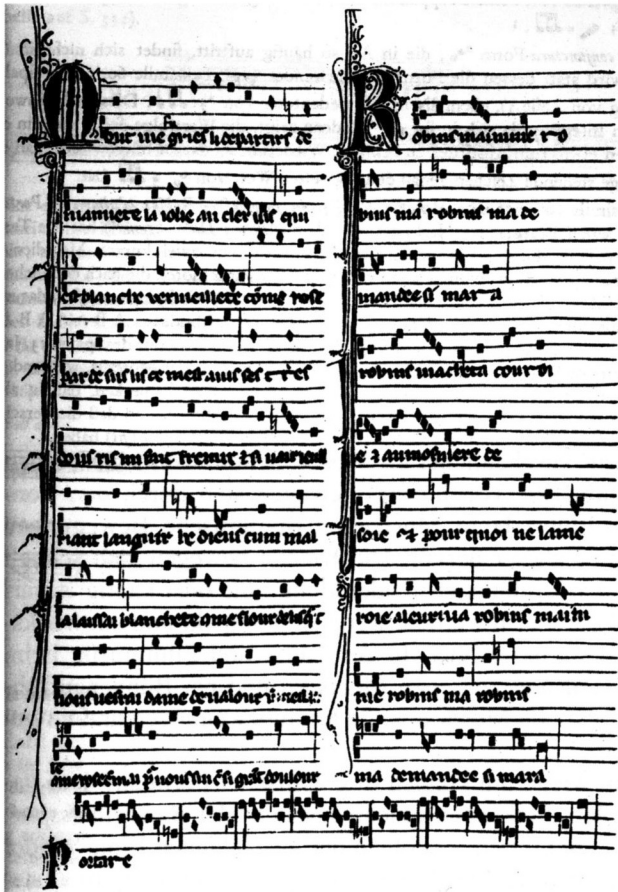 Mout me fu gries li departirs de
mamiete la iolie au cler uis qui
est blanche vermeillete cõme rose
par desus lis ce mest auis ses t̃res
dous ris mi fait fremir & si uair oeull
riant languir he dieus cum mal
la laissai blanchete
uous uerrai dame de ualour
pr̃ uous sui en si grãt doulour
Robins maimme ro
bins ma robins ma de
mandee si mara
robins macheta courroi
e & aumosniere de
soie & pour quoi ne lame
roie aleuriua robins maim
me robins ma robins
ma demandee si mara
Portare